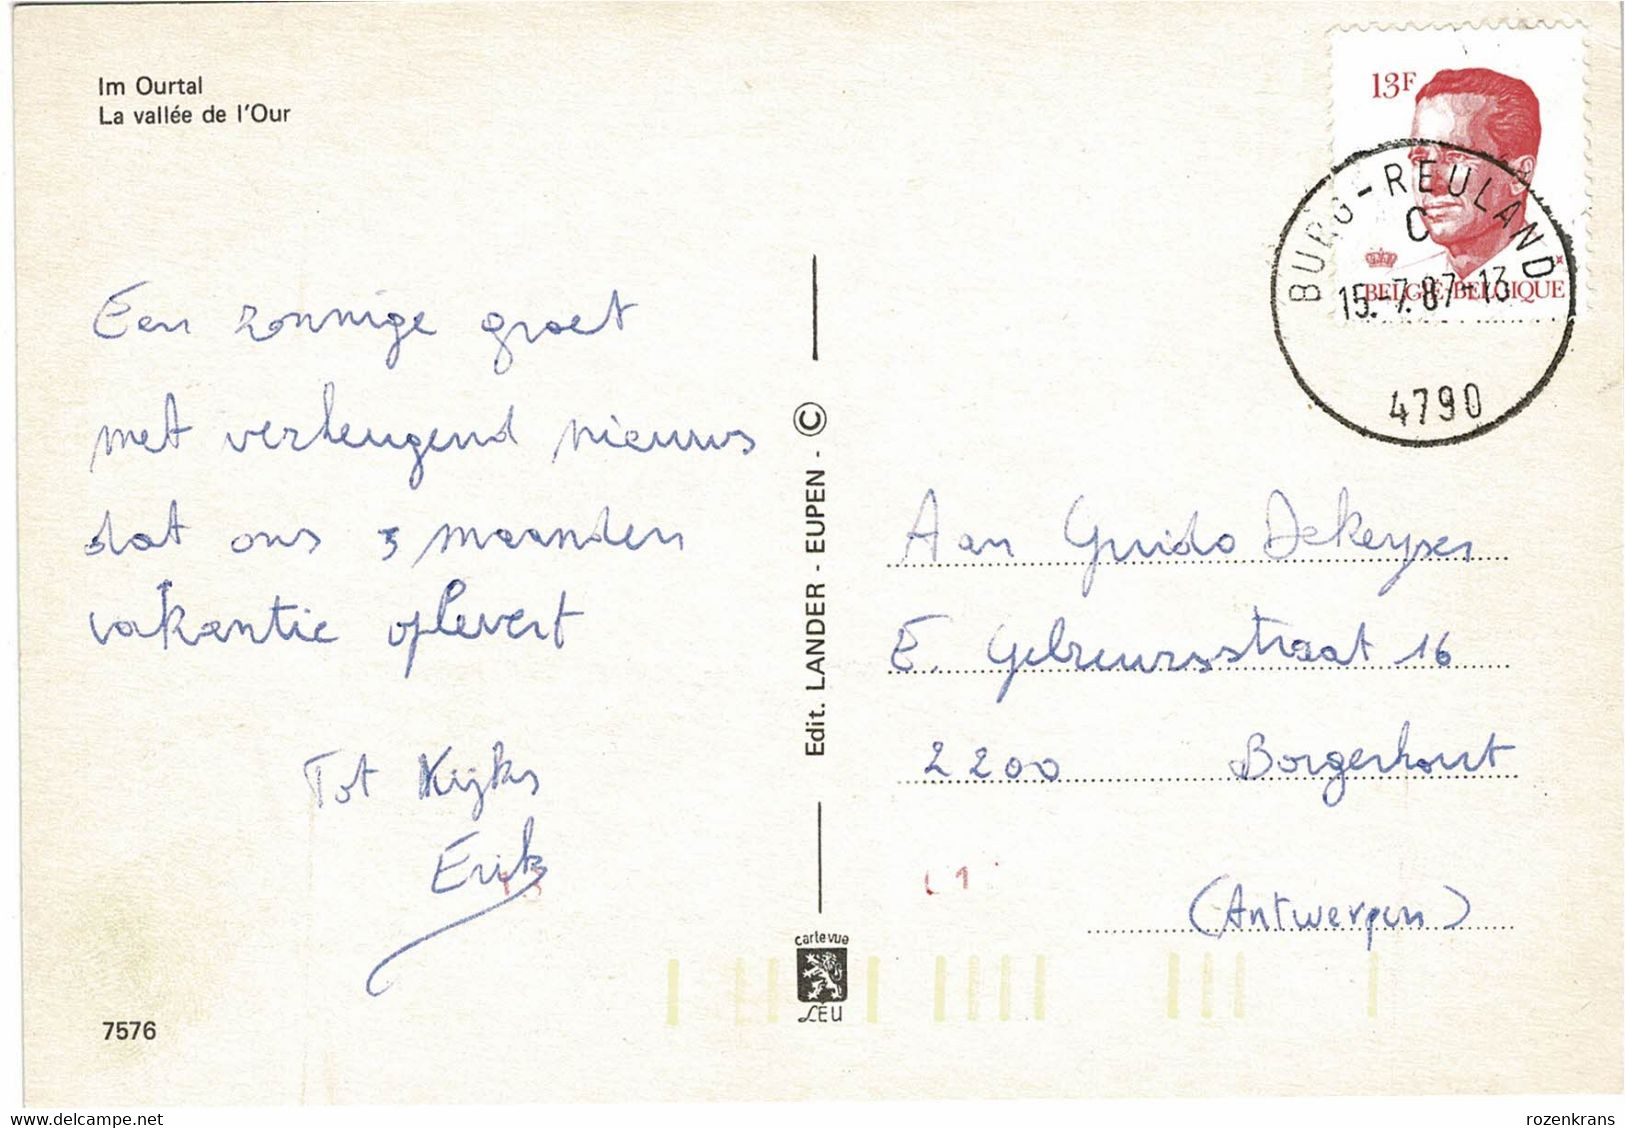 Im Ourtal
La vallée de l'Our
13F
BELGIE-BELGIQUE
BURG-REULAND
C
15.-7.87-13
4790
Een zonnige groet
met verheugend nieuws
dat ons 3 maanden
vakantie oplevert
Tot Kijks
Erik
Edit. LANDER - EUPEN - ©
Aan Guido Dekeyser
E. Gelreuwsstraat 16
2200 Borgerhout
(Antwerpen)
1
carte vue
LEU
7576
delcampe.net
rozenkrans